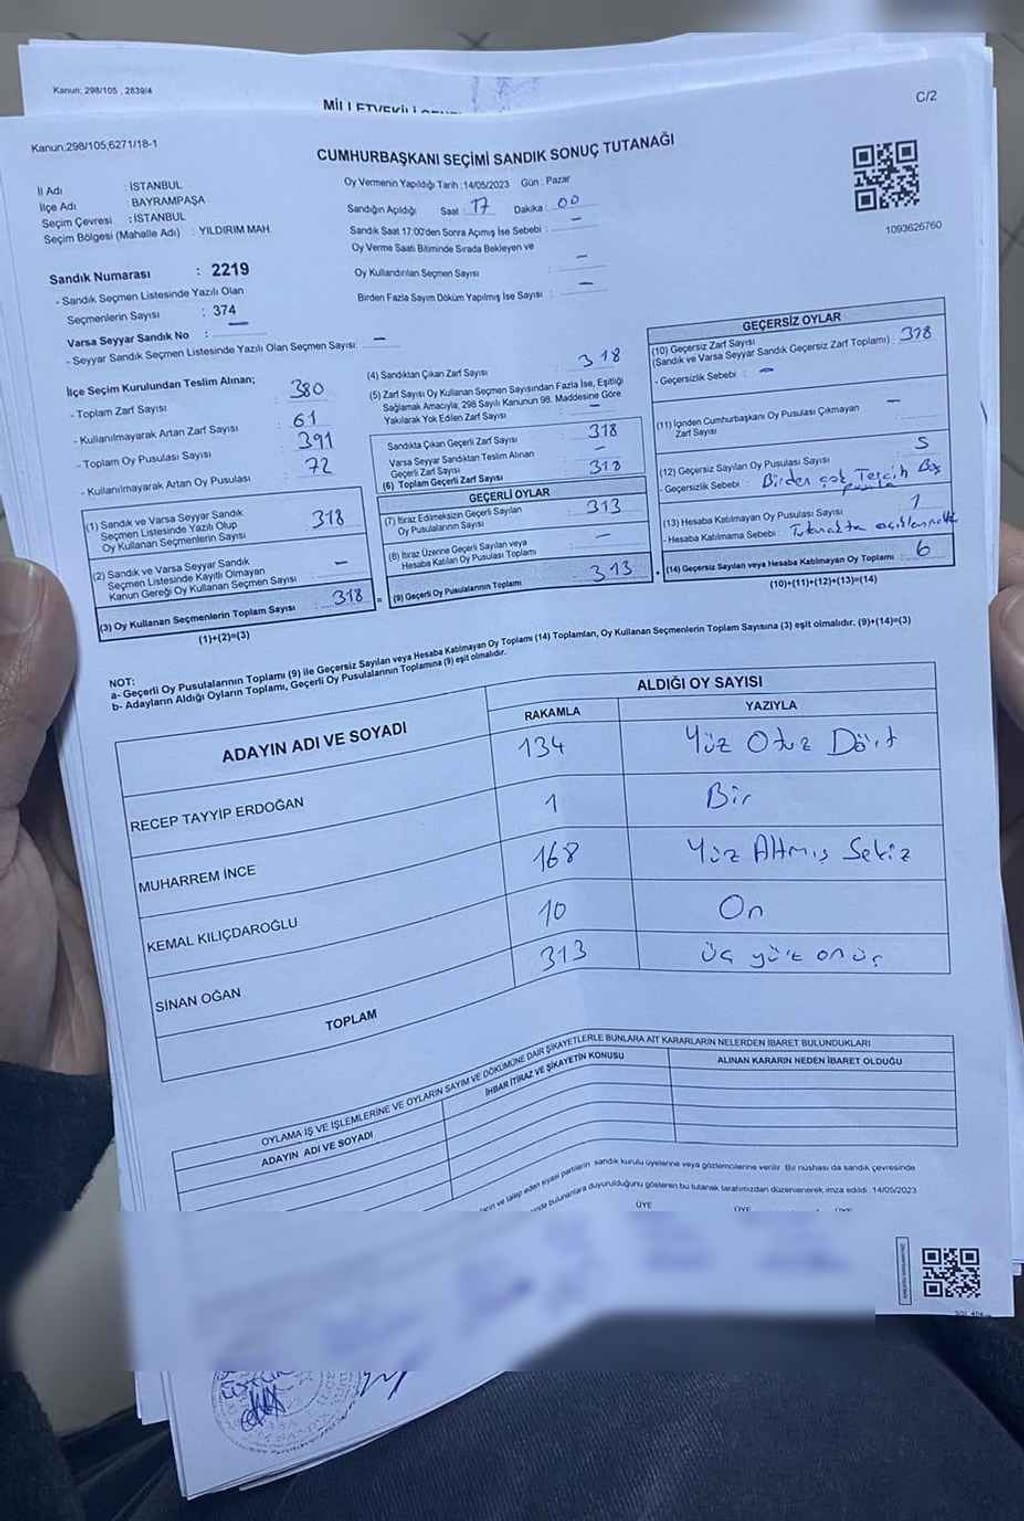 Kanun: 298/105 , 2839/4
C/2
Kanun:298/105,6271/18-1
CUMHURBAŞKANI SEÇİMİ SANDIK SONUÇ TUTANAĞI
İl Adı : İSTANBUL
İlçe Adı BAYRAMPAŞA
Seçim Çevresi : İSTANBUL
Seçim Bölgesi (Mahalle Adı) : YILDIRIM MAH.
Oy Vermenin Yapıldığı Tarih :14/05/2023 Gün : Pazar
Sandığın Açıldığı Saat : 17 Dakika : 00
Sandık Saat 17:00'den Sonra Açılmış İse Sebebi : –
Oy Verme Saati Bitiminde Sırada Bekleyen ve
Oy Kullandırılan Seçmen Sayısı : –
Birden Fazla Sayım Döküm Yapılmış İse Sayısı : –
1093626760
Sandık Numarası : 2219
- Sandık Seçmen Listesinde Yazılı Olan
Seçmenlerin Sayısı : 374
Varsa Seyyar Sandık No : –
- Seyyar Sandık Seçmen Listesinde Yazılı Olan Seçmen Sayısı: –
İlçe Seçim Kurulundan Teslim Alınan;
- Toplam Zarf Sayısı : 380
- Kullanılmayarak Artan Zarf Sayısı : 61
- Toplam Oy Pusulası Sayısı : 391
- Kullanılmayarak Artan Oy Pusulası : 72
(1) Sandık ve Varsa Seyyar Sandık
Seçmen Listesinde Yazılı Olup
Oy Kullanan Seçmenlerin Sayısı : 318
(2) Sandık ve Varsa Seyyar Sandık
Seçmen Listesinde Kayıtlı Olmayan
Kanun Gereği Oy Kullanan Seçmen Sayısı : –
(3) Oy Kullanan Seçmenlerin Toplam Sayısı : 318 =
(1)+(2)=(3)
(4) Sandıktan Çıkan Zarf Sayısı : 318
(5) Zarf Sayısı Oy Kullanan Seçmen Sayısından Fazla İse, Eşitliği
Sağlamak Amacıyla; 298 Sayılı Kanunun 98. Maddesine Göre
Yakılarak Yok Edilen Zarf Sayısı : –
Sandıkta Çıkan Geçerli Zarf Sayısı : 318
Varsa Seyyar Sandıktan Teslim Alınan
Geçerli Zarf Sayısı : –
(6) Toplam Geçerli Zarf Sayısı : 318
GEÇERLİ OYLAR
(7) İtiraz Edilmeksizin Geçerli Sayılan
Oy Pusulalarının Sayısı : 313
(8) İtiraz Üzerine Geçerli Sayılan veya
Hesaba Katılan Oy Pusulası Toplamı : –
(9) Geçerli Oy Pusulalarının Toplamı : 313 +
GEÇERSİZ OYLAR
(10) Geçersiz Zarf Sayısı
(Sandık ve Varsa Seyyar Sandık Geçersiz Zarf Toplamı) : 318
- Geçersizlik Sebebi : –
(11) İçinden Cumhurbaşkanı Oy Pusulası Çıkmayan
Zarf Sayısı : –
(12) Geçersiz Sayılan Oy Pusulası Sayısı : 5
- Geçersizlik Sebebi : Birden çok Tercih Boş
(13) Hesaba Katılmayan Oy Pusulası Sayısı : 1
- Hesaba Katılmama Sebebi : Tutanakta
(14) Geçersiz Sayılan veya Hesaba Katılmayan Oy Toplamı : 6
(10)+(11)+(12)+(13)=(14)
NOT:
a- Geçerli Oy Pusulalarının Toplamı (9) ile Geçersiz Sayılan veya Hesaba Katılmayan Oy Toplamı (14) Toplamları, Oy Kullanan Seçmenlerin Toplam Sayısına (3) eşit olmalıdır. (9)+(14)=(3)
b- Adayların Aldığı Oyların Toplamı, Geçerli Oy Pusulalarının Toplamına (9) eşit olmalıdır.
ADAYIN ADI VE SOYADI ALDIĞI OY SAYISI
RAKAMLA YAZIYLA
RECEP TAYYİP ERDOĞAN 134 Yüz Otuz Dört
MUHARREM İNCE 1 Bir
KEMAL KILIÇDAROĞLU 168 Yüz Altmış Sekiz
SİNAN OĞAN 10 On
TOPLAM 313 üç yüz onüç
OYLAMA İŞ VE İŞLEMLERİNE VE OYLARIN SAYIM VE DÖKÜMÜNE DAİR ŞİKAYETLERLE BUNLARA AİT KARARLARIN NELERDEN İBARET BULUNDUKLARI
ADAYIN ADI VE SOYADI İHBAR İTİRAZ VE ŞİKAYETİN KONUSU ALINAN KARARIN NEDEN İBARET OLDUĞU
ve talep eden siyasi partilerin sandık kurulu üyelerine veya gözlemcilerine verilir. Bir nüshası da sandık çevresinde
bulunanlara duyurulduğunu gösteren bu tutanak tarafımızdan düzenlenerek imza edildi. 14/05/2023
ÜYE ÜYE ÜYE